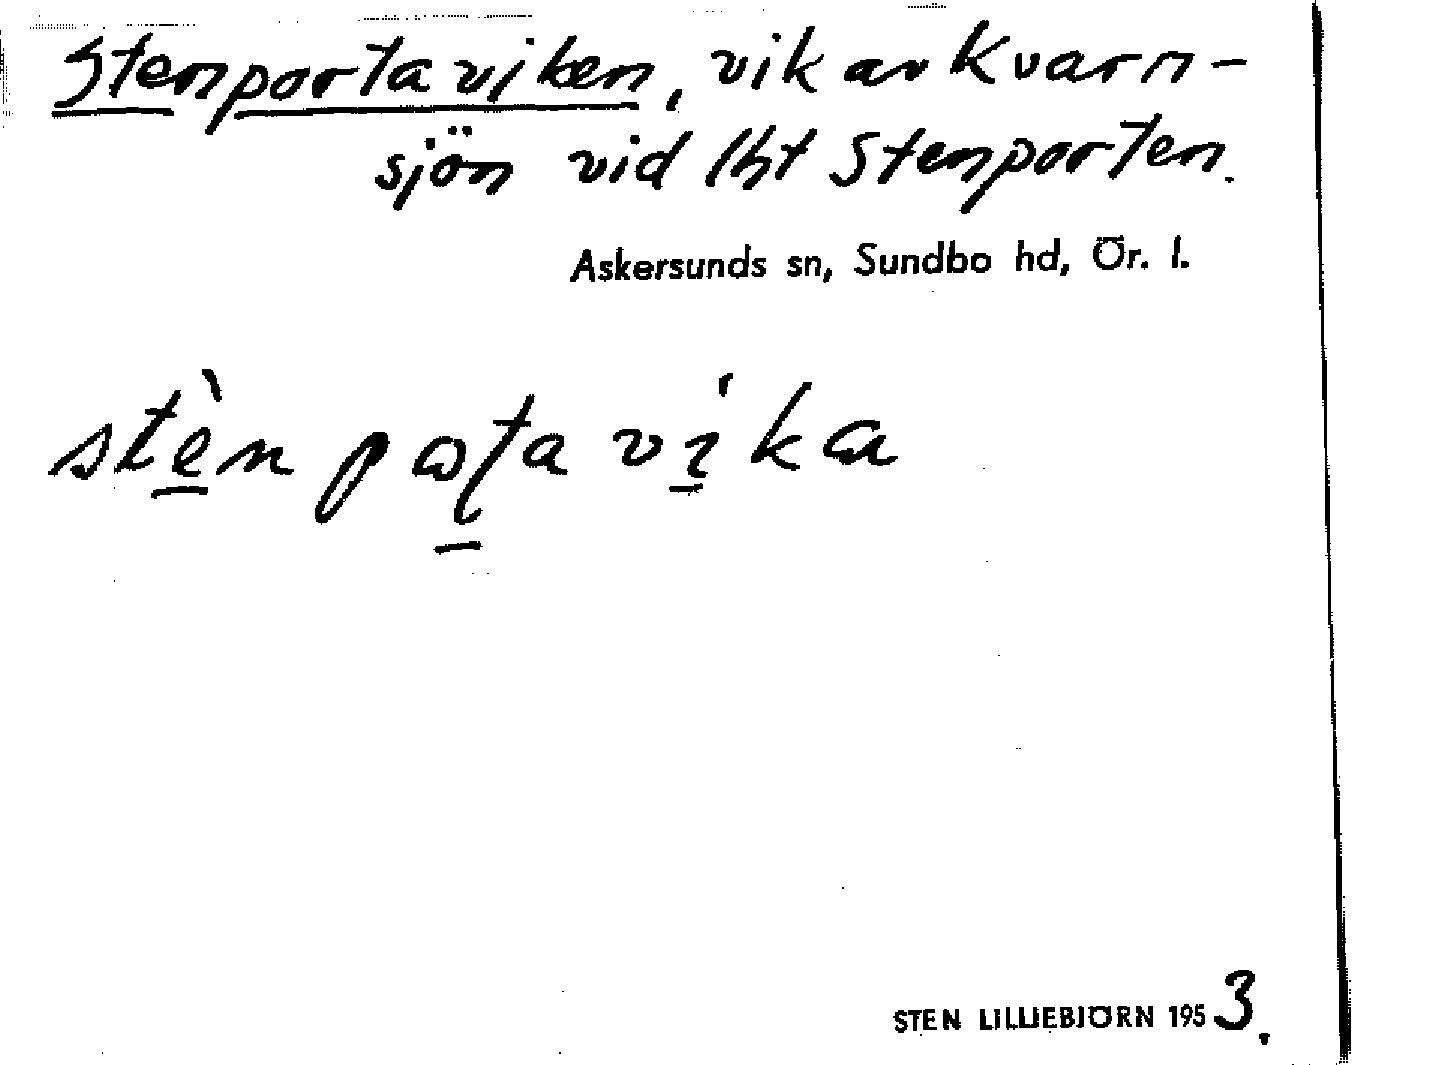 Stenportaviken, vik av Kvarn-
sjön vid lht Stenporten.
Askersunds sn, Sundbo hd, Ör. l.
STEN LILLIEBJÖRN 1953.